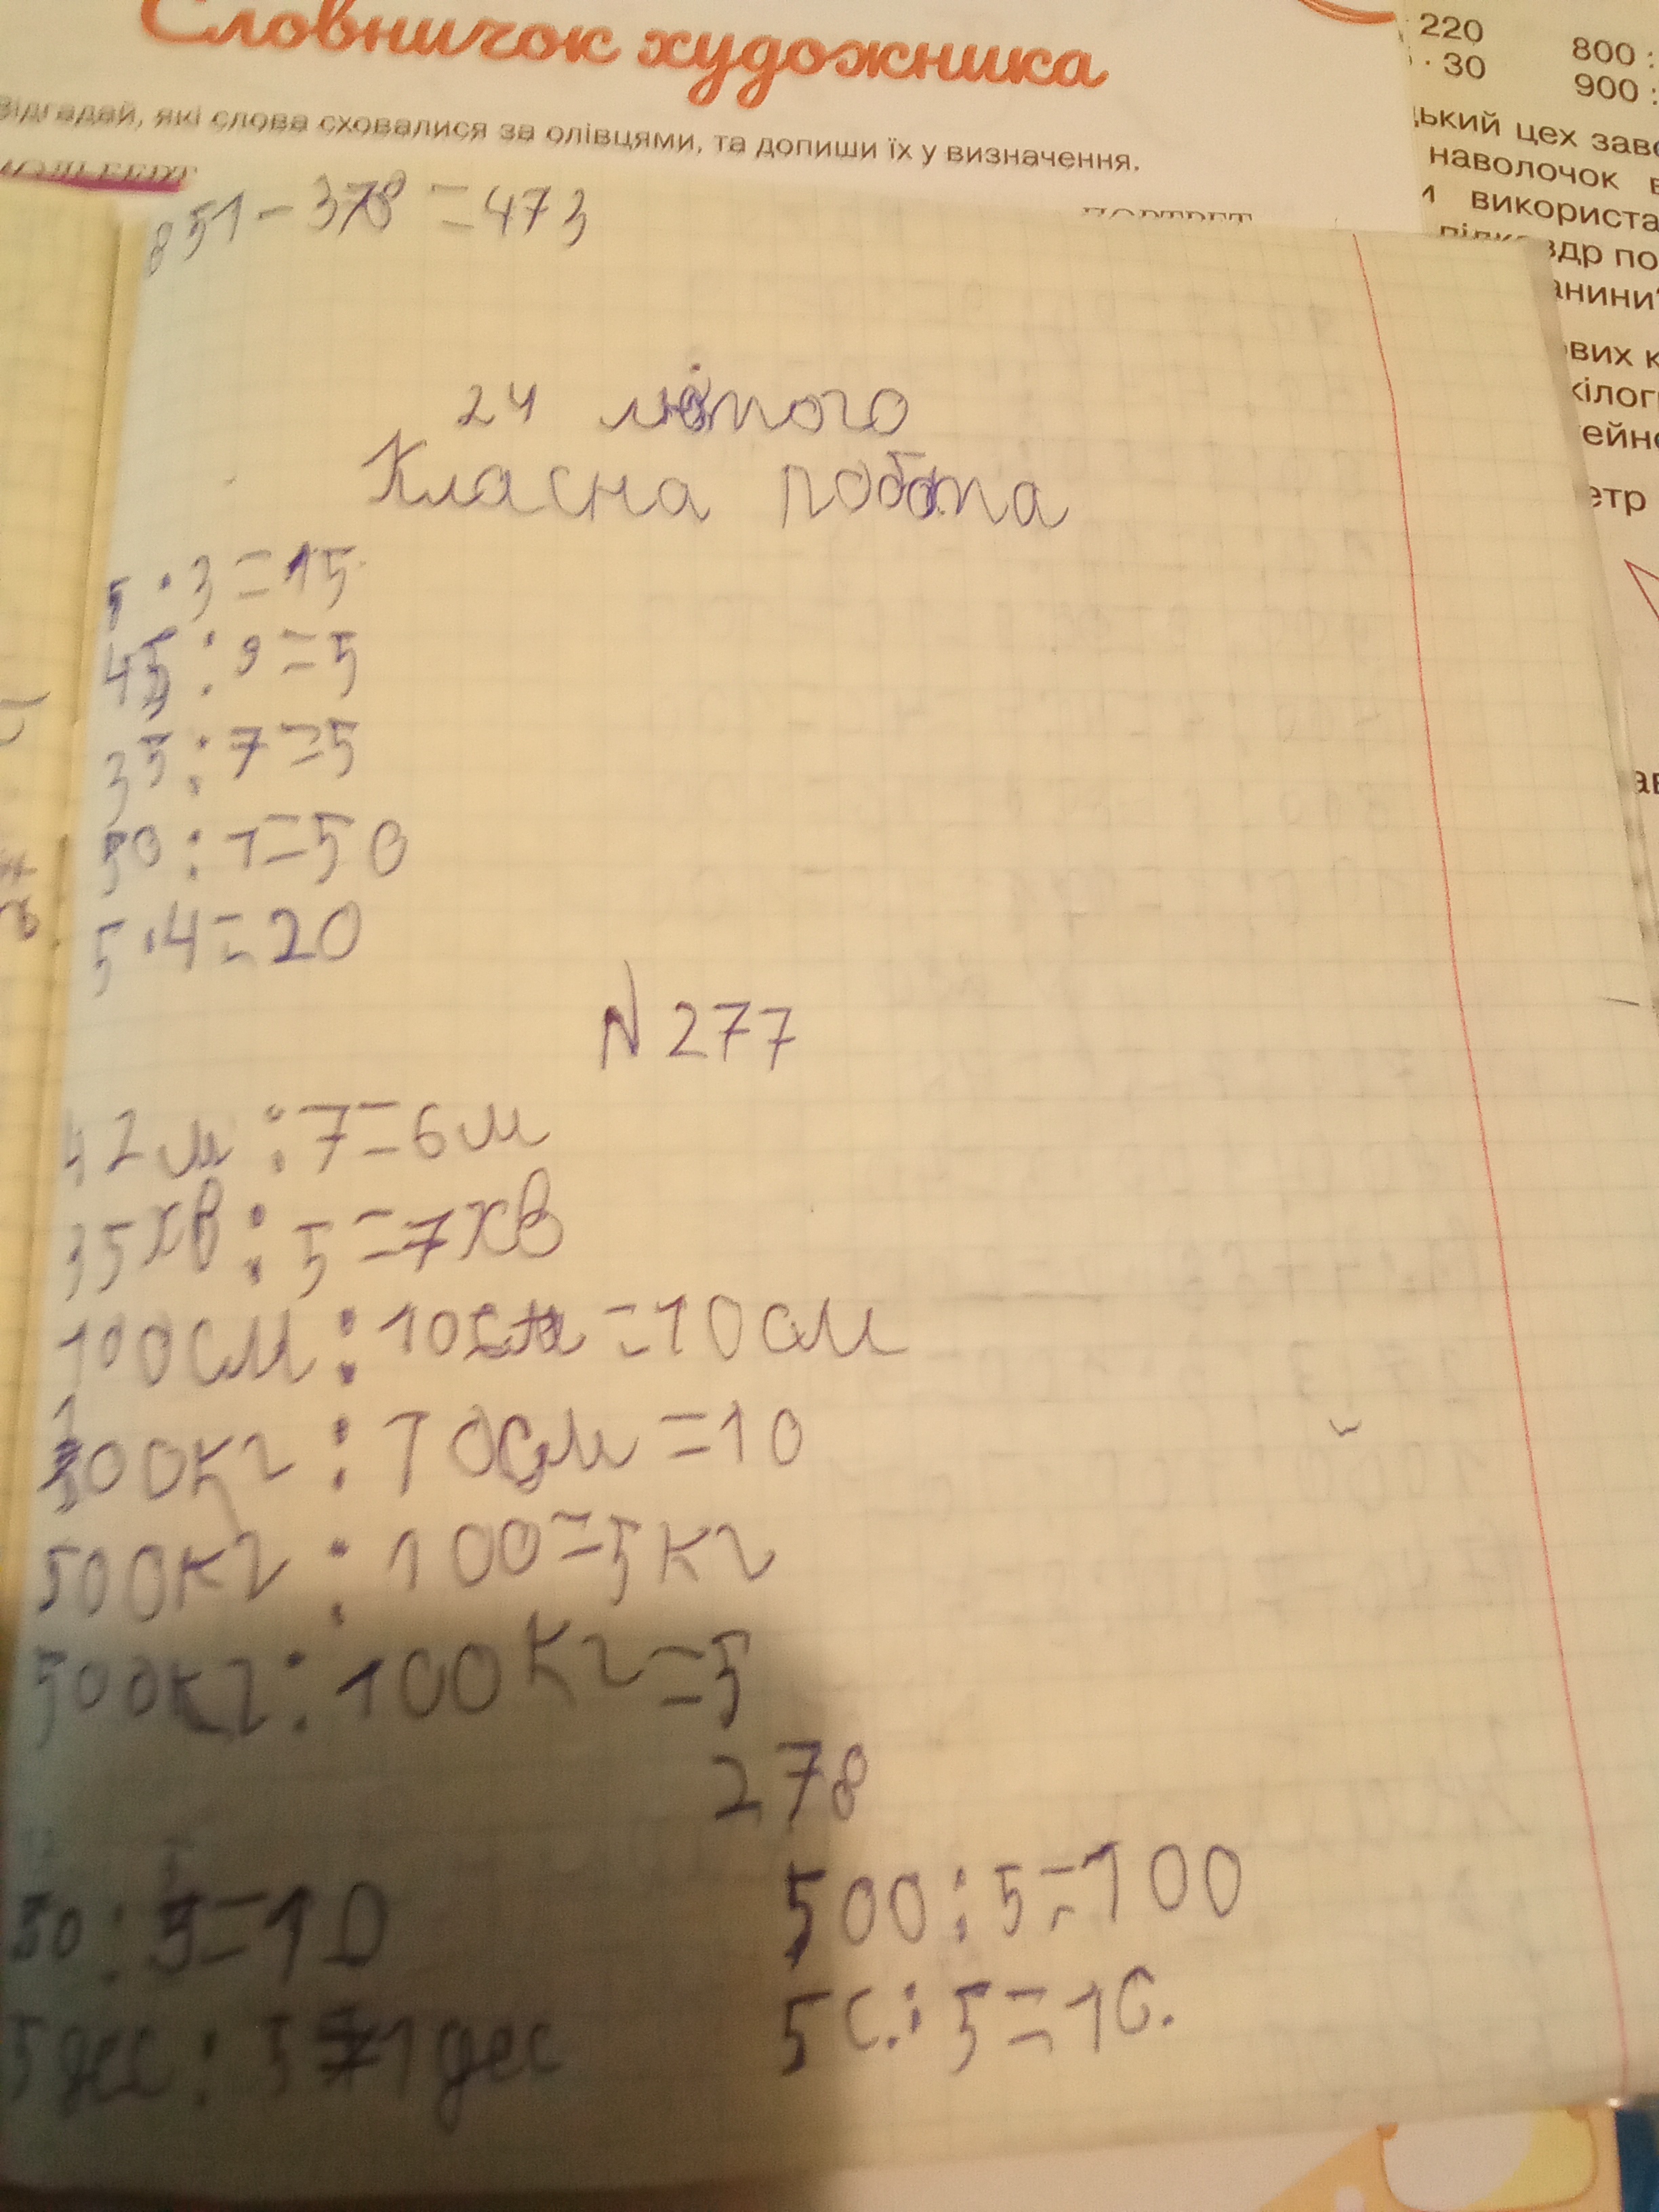 Словничок художника
Відгадай, які слова сховалися за олівцями, та допиши їх у визначення.
220
800 :
· 30
900 :
цех
наволочок
використа
по
851 - 378 = 473
24 лютого
Класна робота
5 · 3 = 15
45 : 9 = 5
35 : 7 = 5
50 : 1 = 50
5 · 4 = 20
N 277
42м : 7 = 6м
35хв : 5 = 7хв
100см : 10 = 10см
100кг : 10см = 10
500кг : 100 = 5кг
500кг : 100кг = 5
278
50 : 5 = 10
500 : 5 = 100
5дес : 5 = 1дес
5С. : 5 = 1С.